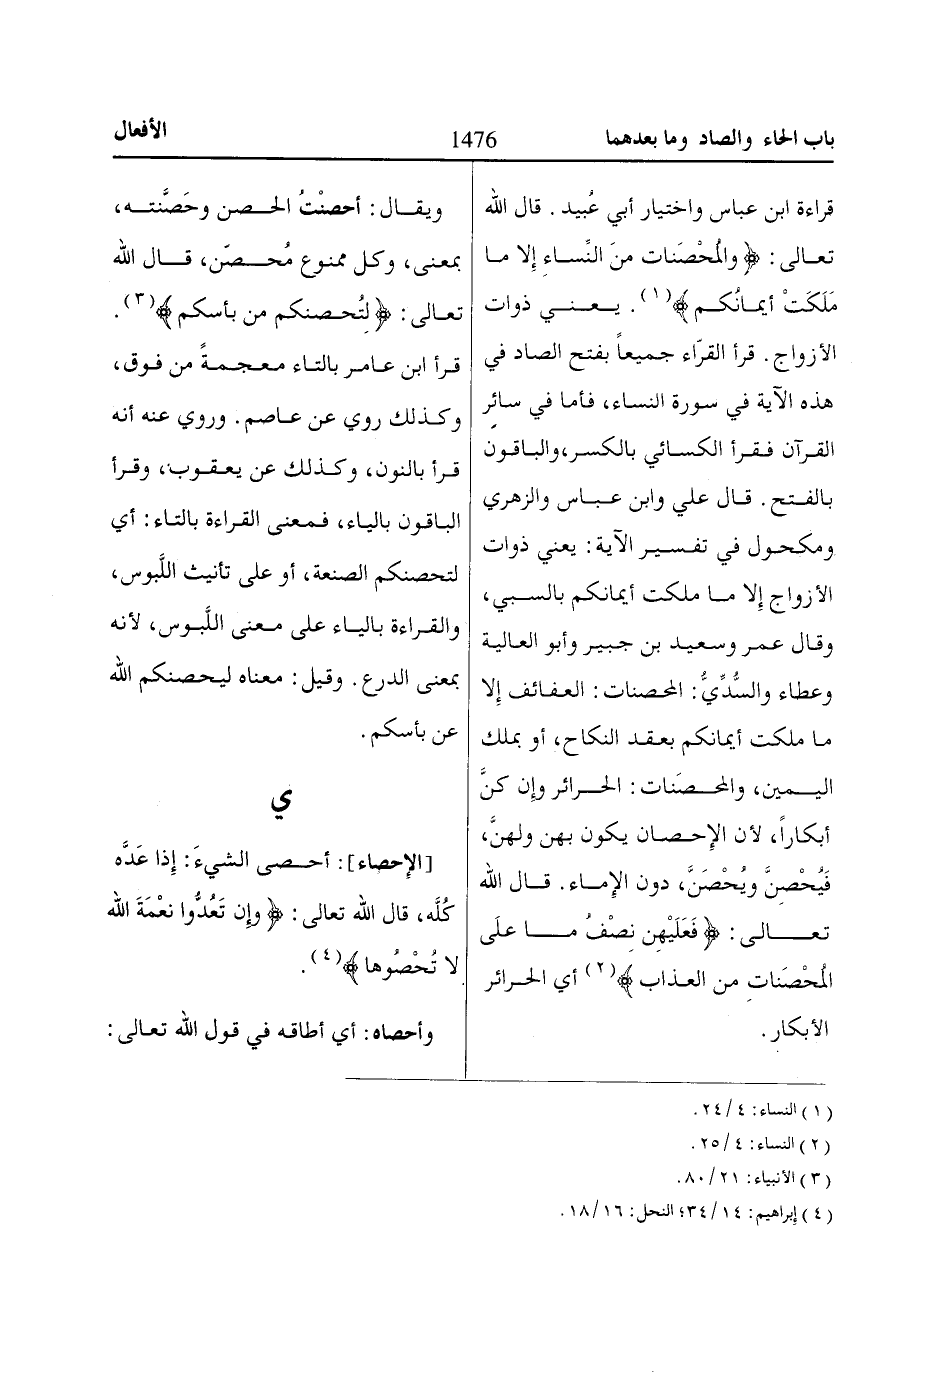 باب الحاء والصاد وما بعدهما
1476
الأفعال
قراءة ابن عباس واختيار أبي عُبيد. قال الله
تعالى: ﴿والمُحْصَنات منَ النِّساء إلا ما
مَلَكَتْ أيمانُكم﴾(١). يعني ذوات
الأزواج. قرأ القرّاء جميعاً بفتح الصاد في
هذه الآية في سورة النساء، فأما في سائر
القرآن فقرأ الكسائي بالكسر، والباقون
بالفتح. قال علي وابن عباس والزهري
ومكحول في تفسير الآية: يعني ذوات
الأزواج إلا ما ملكت أيمانكم بالسبي،
وقال عمر وسعيد بن جبير وأبو العالية
وعطاء والسُّدِّيُّ: المحصنات: العفائف إلا
ما ملكت أيمانكم بعقد النكاح، أو بملك
اليمين، والمحصَنات: الحرائر وإن كنَّ
أبكاراً، لأن الإحصان يكون بهن ولهنَّ،
فَيُحْصِنَّ ويُحْصَنَّ، دون الإماء. قال الله
تعالى: ﴿فَعَلَيْهن نصْفُ ما على
المُحْصَنات من العذاب﴾(٢) أي الحرائر
الأبكار.
ويقال: أحصنْتُ الحصن وحَصَّنته،
بمعنى، وكل ممنوع مُحصَن، قال الله
تعالى: ﴿لتُحصنكم من بأسكم﴾(٣).
قرأ ابن عامر بالتاء معجمةً من فوق،
وكذلك روي عن عاصم. وروي عنه أنه
قرأ بالنون، وكذلك عن يعقوب، وقرأ
الباقون بالياء، فمعنى القراءة بالتاء: أي
لتحصنكم الصنعة، أو على تأنيث اللَّبوس،
والقراءة بالياء على معنى اللَّبوس، لأنه
بمعنى الدرع. وقيل: معناه ليحصنكم الله
عن بأسكم.
ي
[الإحصاء]: أحصى الشيءَ: إذا عَدَّه
كُلَّه، قال الله تعالى: ﴿وإن تَعُدُّوا نعْمَةَ الله
لا تُحْصُوها﴾(٤).
وأحصاه: أي أطاقه في قول الله تعالى:
(١) النساء: ٤/ ٢٤.
(٢) النساء: ٤/ ٢٥.
(٣) الأنبياء: ٢١/ ٨٠.
(٤) إبراهيم: ١٤/ ٣٤؛ النحل: ١٦/ ١٨.